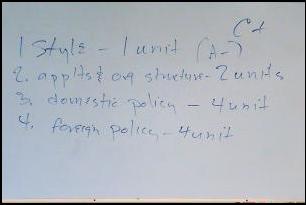 C+
1 Style - 1 unit (A-)
2. appts & org structure - 2 units
3. domestic policy - 4 unit
4. foreign policy - 4 unit